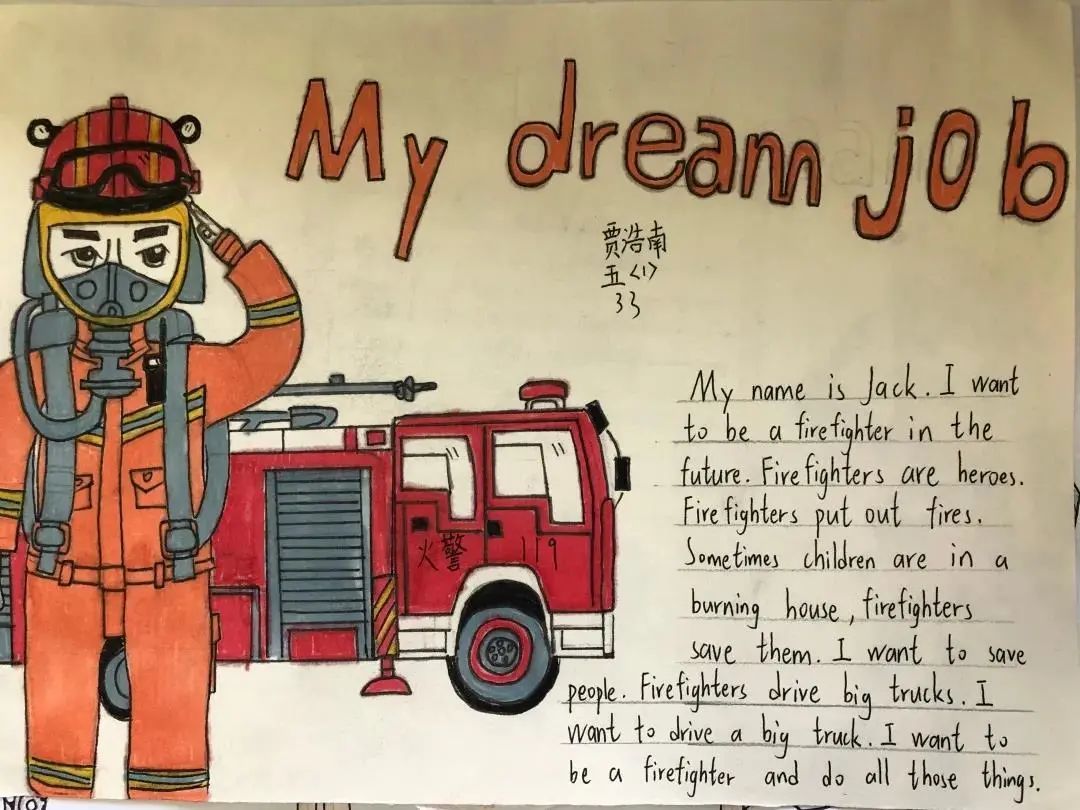 My dream job
贾浩南
五<1>
33
My name is Jack. I want
to be a firefighter in the
future. Firefighters are heroes.
Firefighters put out fires.
Sometimes children are in a
burning house, firefighters
save them. I want to save
people. Firefighters drive big trucks. I
want to drive a big truck. I want to
be a firefighter and do all those things.
火警 119